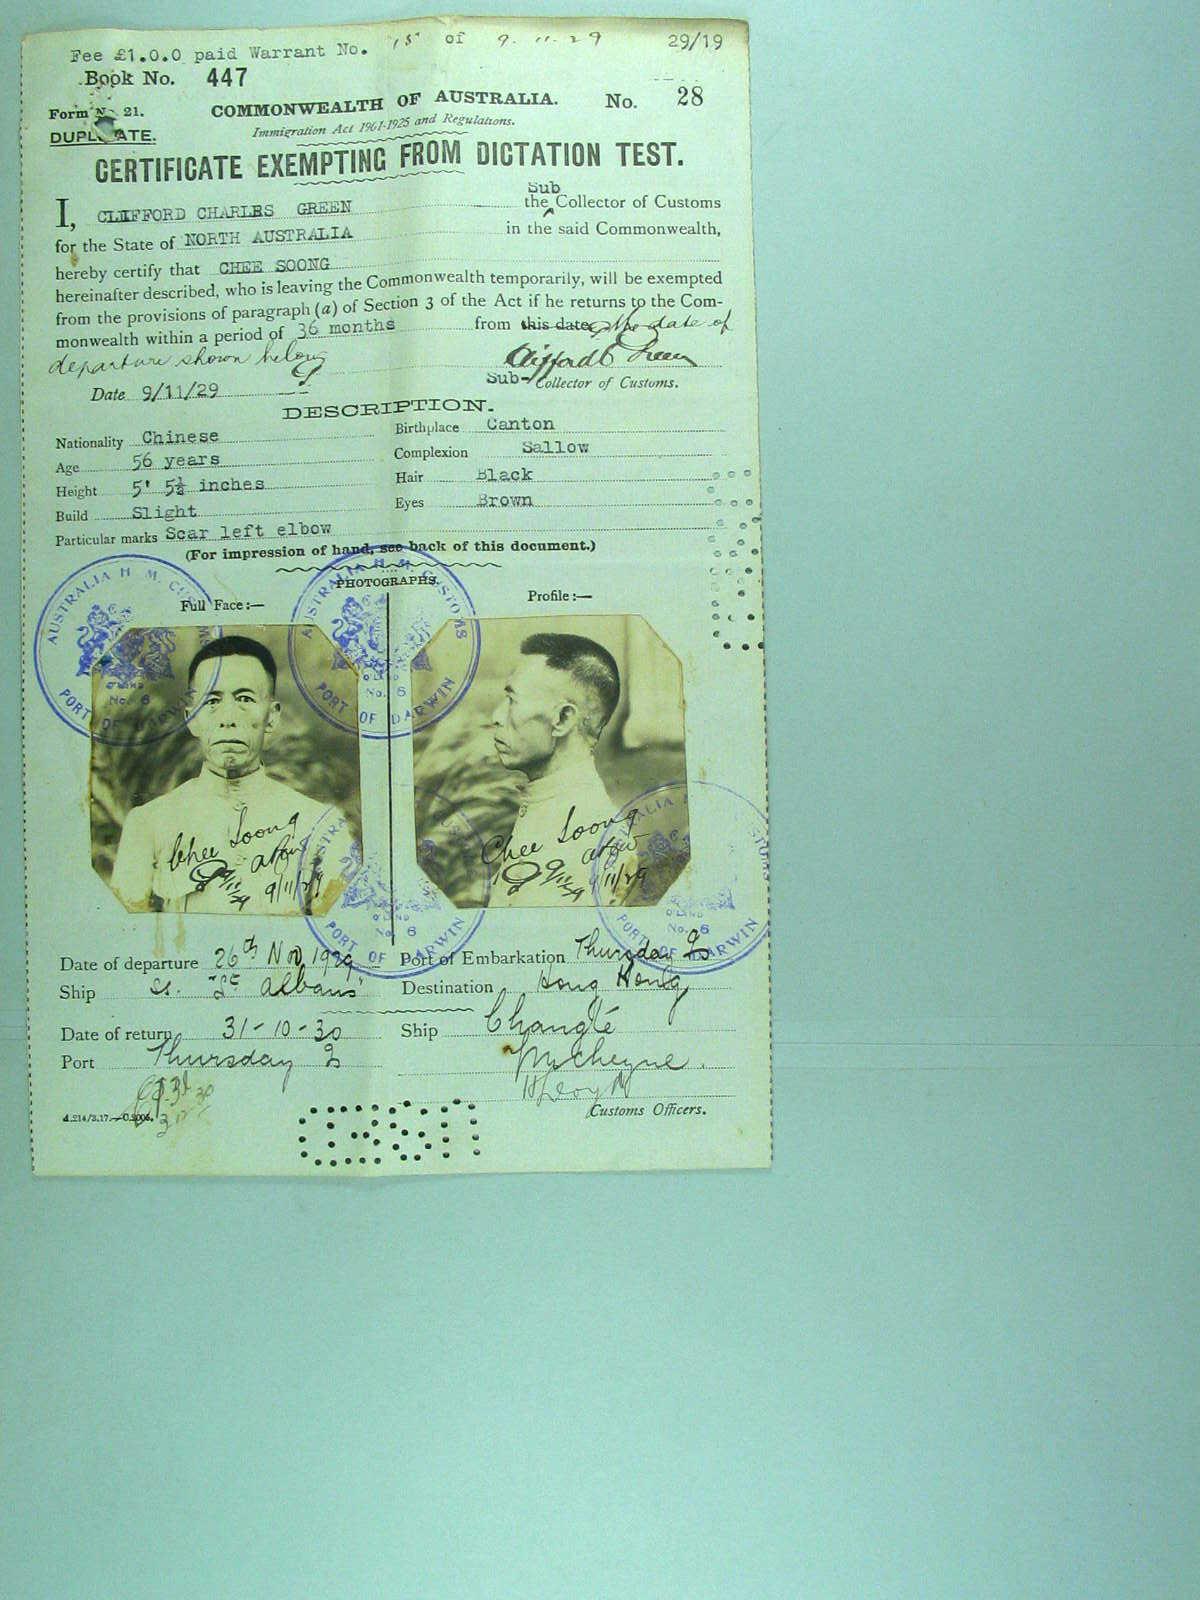 Fee £1.0.0 paid Warrant No. 15 of 9.11.29 29/19
Book No. 447
Form No 21. COMMONWEALTH OF AUSTRALIA. No. 28
DUPLICATE. Immigration Act 1901-1925 and Regulations.
CERTIFICATE EXEMPTING FROM DICTATION TEST.
Sub
I, CLIFFORD CHARLES GREEN the Collector of Customs
for the State of NORTH AUSTRALIA in the said Commonwealth,
hereby certify that CHEE SOONG
hereinafter described, who is leaving the Commonwealth temporarily, will be exempted
from the provisions of paragraph (a) of Section 3 of the Act if he returns to the Com-
monwealth within a period of 36 months from this date, the date of
departure shown below Clifford C Green
Date 9/11/29 Sub-Collector of Customs.
DESCRIPTION.
Nationality Chinese Birthplace Canton
Age 56 years Complexion Sallow
Height 5' 5½ inches Hair Black
Build Slight Eyes Brown
Particular marks Scar left elbow
(For impression of hand, see back of this document.)
PHOTOGRAPHS.
Full Face:— Profile:—
AUSTRALIA H. M. CUSTOMS
Q'LAND
No. 6
PORT OF DARWIN
AUSTRALIA H. M. CUSTOMS
Q'LAND
No. 6
PORT OF DARWIN
Chee Soong
9/11/29 9/11/29
Chee Soong
9/11/29 9/11/29
AUSTRALIA
Q'LAND
No. 6
PORT OF DARWIN
AUSTRALIA
Q'LAND
No. 6
PORT OF DARWIN
Date of departure 26th Nov 1929 Port of Embarkation Thursday Is
Ship ss. "St Albans" Destination Hong Kong
Date of return 31-10-30 Ship Changte
Port Thursday Is McCheyne.
Customs Officers.